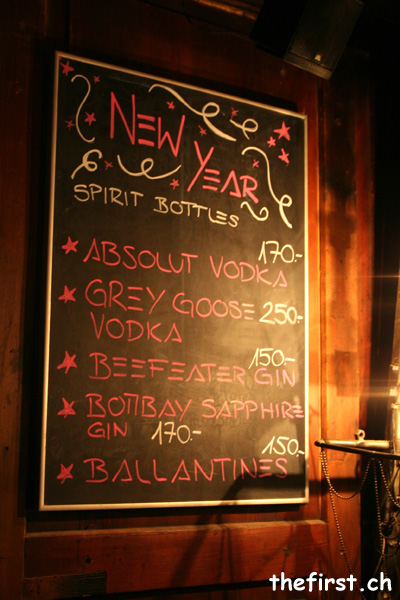 NEW YEAR
SPIRIT BOTTLES
ABSOLUT VODKA 170.-
GREY GOOSE 250.-
VODKA
BEEFEATER GIN 150.-
BOMBAY SAPPHIRE
GIN 170.-
BALLANTINES 150.-
thefirst.ch